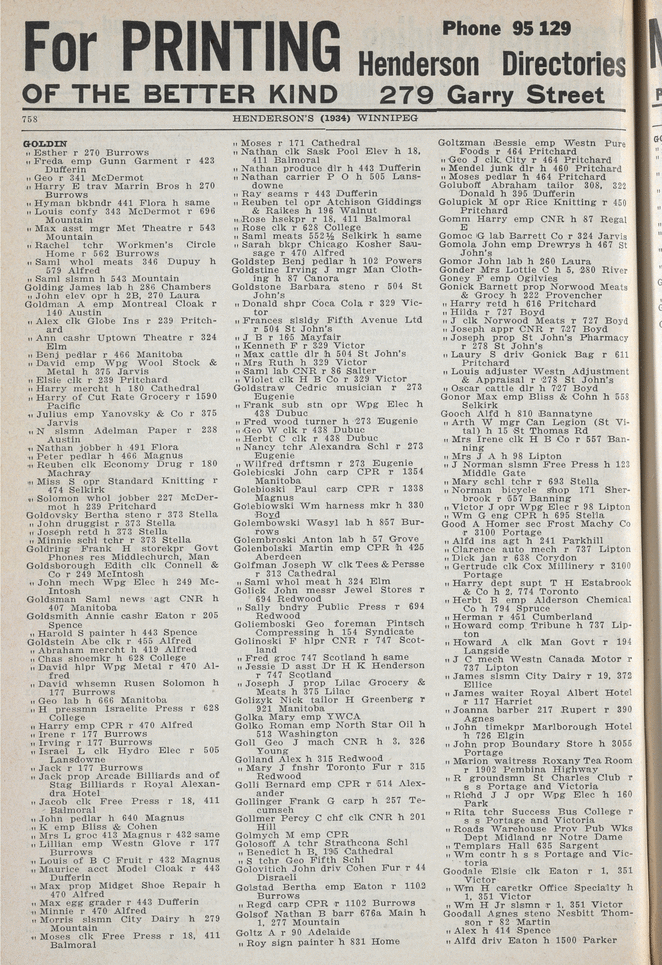 For PRINTING
OF THE BETTER KIND
Phone 95 129
Henderson Directories
279 Garry Street
758
HENDERSON'S (1934) WINNIPEG
GOLDIN
„ Esther r 270 Burrows
„ Freda emp Gunn Garment r 423
Dufferin
„ Geo r 341 McDermot
„ Harry E trav Marrin Bros h 270
Burrows
„ Hyman bkbndr 441 Flora h same
„ Louis confy 343 McDermot r 696
Mountain
„ Max asst mgr Met Theatre r 543
Mountain
„ Rachel tchr Workmen's Circle
Home r 562 Burrows
„ Saml whol meats 346 Dupuy h
579 Alfred
„ Saml slsmn h 543 Mountain
Golding James lab h 286 Chambers
„ John elev opr h 2B, 270 Laura
Goldman A emp Montreal Cloak r
140 Austin
„ Alex clk Globe Ins r 239 Pritch-
ard
„ Ann cashr Uptown Theatre r 324
Elm
„ Benj pedlar r 466 Manitoba
„ David emp Wpg Wool Stock &
Metal h 375 Jarvis
„ Elsie clk r 239 Pritchard
„ Harry mercht h 180 Cathedral
„ Harry of Cut Rate Grocery r 1590
Pacific
„ Julius emp Yanovsky & Co r 375
Jarvis
„ N slsmn Adelman Paper r 238
Austin
„ Nathan jobber h 491 Flora
„ Peter pedlar h 466 Magnus
„ Reuben clk Economy Drug r 180
Machray
„ Miss S opr Standard Knitting r
474 Selkirk
„ Solomon whol jobber 227 McDer-
mot h 239 Pritchard
Goldovsky Bertha steno r 373 Stella
„ John druggist r 373 Stella
„ Joseph retd h 373 Stella
„ Minnie schl tchr r 373 Stella
Goldring Frank H storekpr Govt
Phones res Middlechurch, Man
Goldsborough Edith clk Connell &
Co r 249 McIntosh
„ John mech Wpg Elec h 249 Mc-
Intosh
Goldsman Saml news agt CNR h
407 Manitoba
Goldsmith Annie cashr Eaton r 205
Spence
„ Harold S painter h 443 Spence
Goldstein Abe clk r 455 Alfred
„ Abraham mercht h 419 Alfred
„ Chas shoemkr h 628 College
„ David hlpr Wpg Metal r 470 Al-
fred
„ David whsemn Rusen Solomon h
177 Burrows
„ Geo lab h 666 Manitoba
„ H pressmn Israelite Press r 628
College
„ Harry emp CPR r 470 Alfred
„ Irene r 177 Burrows
„ Irving r 177 Burrows
„ Israel L clk Hydro Elec r 505
Lansdowne
„ Jack r 177 Burrows
„ Jack prop Arcade Billiards and of
Stag Billiards r Royal Alexan-
dra Hotel
„ Jacob clk Free Press r 18, 411
Balmoral
„ John pedlar h 640 Magnus
„ K emp Bliss & Cohen
„ Mrs L groc 413 Magnus r 432 same
„ Lillian emp Westn Glove r 177
Burrows
„ Louis of B C Fruit r 432 Magnus
„ Maurice acct Model Cloak r 443
Dufferin
„ Max prop Midget Shoe Repair h
470 Alfred
„ Max egg grader r 443 Dufferin
„ Minnie r 470 Alfred
„ Morris slsmn City Dairy h 279
Mountain
„ Moses clk Free Press r 18, 411
Balmoral
„ Moses r 171 Cathedral
„ Nathan clk Sask Pool Elev h 18,
411 Balmoral
„ Nathan produce dlr h 443 Dufferin
„ Nathan carrier P O h 505 Lans-
downe
„ Ray seams r 443 Dufferin
„ Reuben tel opr Atchison Giddings
& Raikes h 196 Walnut
„ Rose hsekpr r 18, 411 Balmoral
„ Rose clk r 628 College
„ Saml meats 552½ Selkirk h same
„ Sarah bkpr Chicago Kosher Sau-
sage r 470 Alfred
Goldstep Benj pedlar h 102 Powers
Goldstine Irving J mgr Man Cloth-
ing h 87 Canora
Goldstone Barbara steno r 504 St
John's
„ Donald shpr Coca Cola r 329 Vic-
tor
„ Frances slsldy Fifth Avenue Ltd
r 504 St John's
„ J B r 165 Mayfair
„ Kenneth F r 329 Victor
„ Max cattle dlr h 504 St John's
„ Mrs Ruth h 329 Victor
„ Saml lab CNR r 86 Salter
„ Violet clk H B Co r 329 Victor
Goldstraw Cedric musician r 273
Eugenie
„ Frank sub stn opr Wpg Elec h
438 Dubuc
„ Fred wood turner h 273 Eugenie
„ Geo W clk r 438 Dubuc
„ Herbt C clk r 438 Dubuc
„ Nancy tchr Alexandra Schl r 273
Eugenie
„ Wilfred drftsmn r 273 Eugenie
Golebicski John carp CPR r 1354
Manitoba
Golebioski Paul carp CPR r 1338
Magnus
Golebiowski Wm harness mkr h 330
Boyd
Golembowski Wasyl lab h 857 Bur-
rows
Golembroski Anton lab h 57 Grove
Golenbolski Martin emp CPR h 425
Aberdeen
Golfman Joseph W clk Tees & Persse
r 313 Cathedral
„ Saml whol meat h 324 Elm
Golick John messr Jewel Stores r
694 Redwood
„ Sally bndry Public Press r 694
Redwood
Goliemboski Geo foreman Pintsch
Compressing h 154 Syndicate
Golinoski F hlpr CNR r 747 Scot-
land
„ Fred groc 747 Scotland h same
„ Jessie D asst Dr H K Henderson
r 747 Scotland
„ Joseph J prop Lilac Grocery &
Meats h 375 Lilac
Golizyk Nick tailor H Greenberg r
921 Manitoba
Golka Mary emp YWCA
Golko Roman emp North Star Oil h
513 Washington
Goll Geo J mach CNR h 3, 326
Young
Golland Alex h 315 Redwood
„ Mary J fnshr Toronto Fur r 315
Redwood
Golli Bernard emp CPR r 514 Alex-
ander
Gollinger Frank G carp h 257 Te-
cumseh
Gollmer Percy C chf clk CNR h 201
Hill
Golmych M emp CPR
Golosoff A tchr Strathcona Schl
„ Benedict h B, 195 Cathedral
„ S tchr Geo Fifth Schl
Golovitich John driv Cohen Fur r 44
Disraeli
Golstad Bertha emp Eaton r 1102
Burrows
„ Regd carp CPR r 1102 Burrows
Golsof Nathan B barr 676a Main h
1, 277 Mountain
Goltz A r 90 Adelaide
„ Roy sign painter h 831 Home
Goltzman Bessie emp Westn Pure
Foods r 464 Pritchard
„ Geo J clk City r 464 Pritchard
„ Mendel junk dlr h 460 Pritchard
„ Moses pedlar h 464 Pritchard
Goluboff Abraham tailor 308, 322
Donald h 395 Dufferin
Golupick M opr Rice Knitting r 450
Pritchard
Gomm Harry emp CNR h 87 Regal
E
Gomoc G lab Barrett Co r 324 Jarvis
Gomola John emp Drewrys h 467 St
John's
Gomor John lab h 260 Laura
Gonder Mrs Lottie C h 5, 280 River
Goney F emp Ogilvies
Gonick Barnett prop Norwood Meats
& Grocy h 222 Provencher
„ Harry retd h 616 Pritchard
„ Hilda r 727 Boyd
„ J clk Norwood Meats r 727 Boyd
„ Joseph appr CNR r 727 Boyd
„ Joseph prop St John's Pharmacy
r 278 St John's
„ Laury S driv Gonick Bag r 611
Pritchard
„ Louis adjuster Westn Adjustment
& Appraisal r 278 St John's
„ Oscar cattle dlr h 727 Boyd
Gonor Max emp Bliss & Cohn h 558
Selkirk
Gooch Alfd h 810 Bannatyne
„ Arth W mgr Can Legion (St Vi-
tal) h 15 St Thomas Rd
„ Mrs Irene clk H B Co r 557 Ban-
ning
„ Mrs J A h 98 Lipton
„ J Norman slsmn Free Press h 123
Middle Gate
„ Mary schl tchr r 693 Stella
„ Norman bicycle shop 171 Sher-
brook r 557 Banning
„ Victor J opr Wpg Elec r 98 Lipton
„ Wm G eng CPR h 695 Stella
Good A Homer sec Frost Machy Co
r 3100 Portage
„ Alfd ins agt h 241 Parkhill
„ Clarence auto mech r 737 Lipton
„ Dick jan r 638 Corydon
„ Gertrude clk Cox Millinery r 3100
Portage
„ Harry dept supt T H Estabrook
& Co h 2, 774 Toronto
„ Herbt B emp Alderson Chemical
Co h 794 Spruce
„ Herman r 451 Cumberland
„ Howard comp Tribune h 737 Lip-
ton
„ Howard A clk Man Govt r 194
Langside
„ J C mech Westn Canada Motor r
737 Lipton
„ James slsmn City Dairy r 19, 372
Ellice
„ James waiter Royal Albert Hotel
r 117 Harriet
„ Joanna barber 217 Rupert r 390
Agnes
„ John timekpr Marlborough Hotel
h 726 Elgin
„ John prop Boundary Store h 3055
Portage
„ Marion waitress Roxany Tea Room
r 1902 Pembina Highway
„ R groundsmn St Charles Club r
s s Portage and Victoria
„ Richd J J opr Wpg Elec h 160
Park
„ Rita tchr Success Bus College r
s s Portage and Victoria
„ Roads Warehouse Prov Pub Wks
Dept Midland nr Notre Dame
„ Templars Hall 635 Sargent
„ Wm contr h s s Portage and Vic-
toria
Goodale Elsie clk Eaton r 1, 351
Victor
„ Wm H caretkr Office Specialty h
1, 351 Victor
„ Wm H Jr slsmn r 1, 351 Victor
Goodall Agnes steno Nesbitt Thom-
son r 82 Martin
„ Alex h 414 Spence
„ Alfd driv Eaton h 1500 Parker